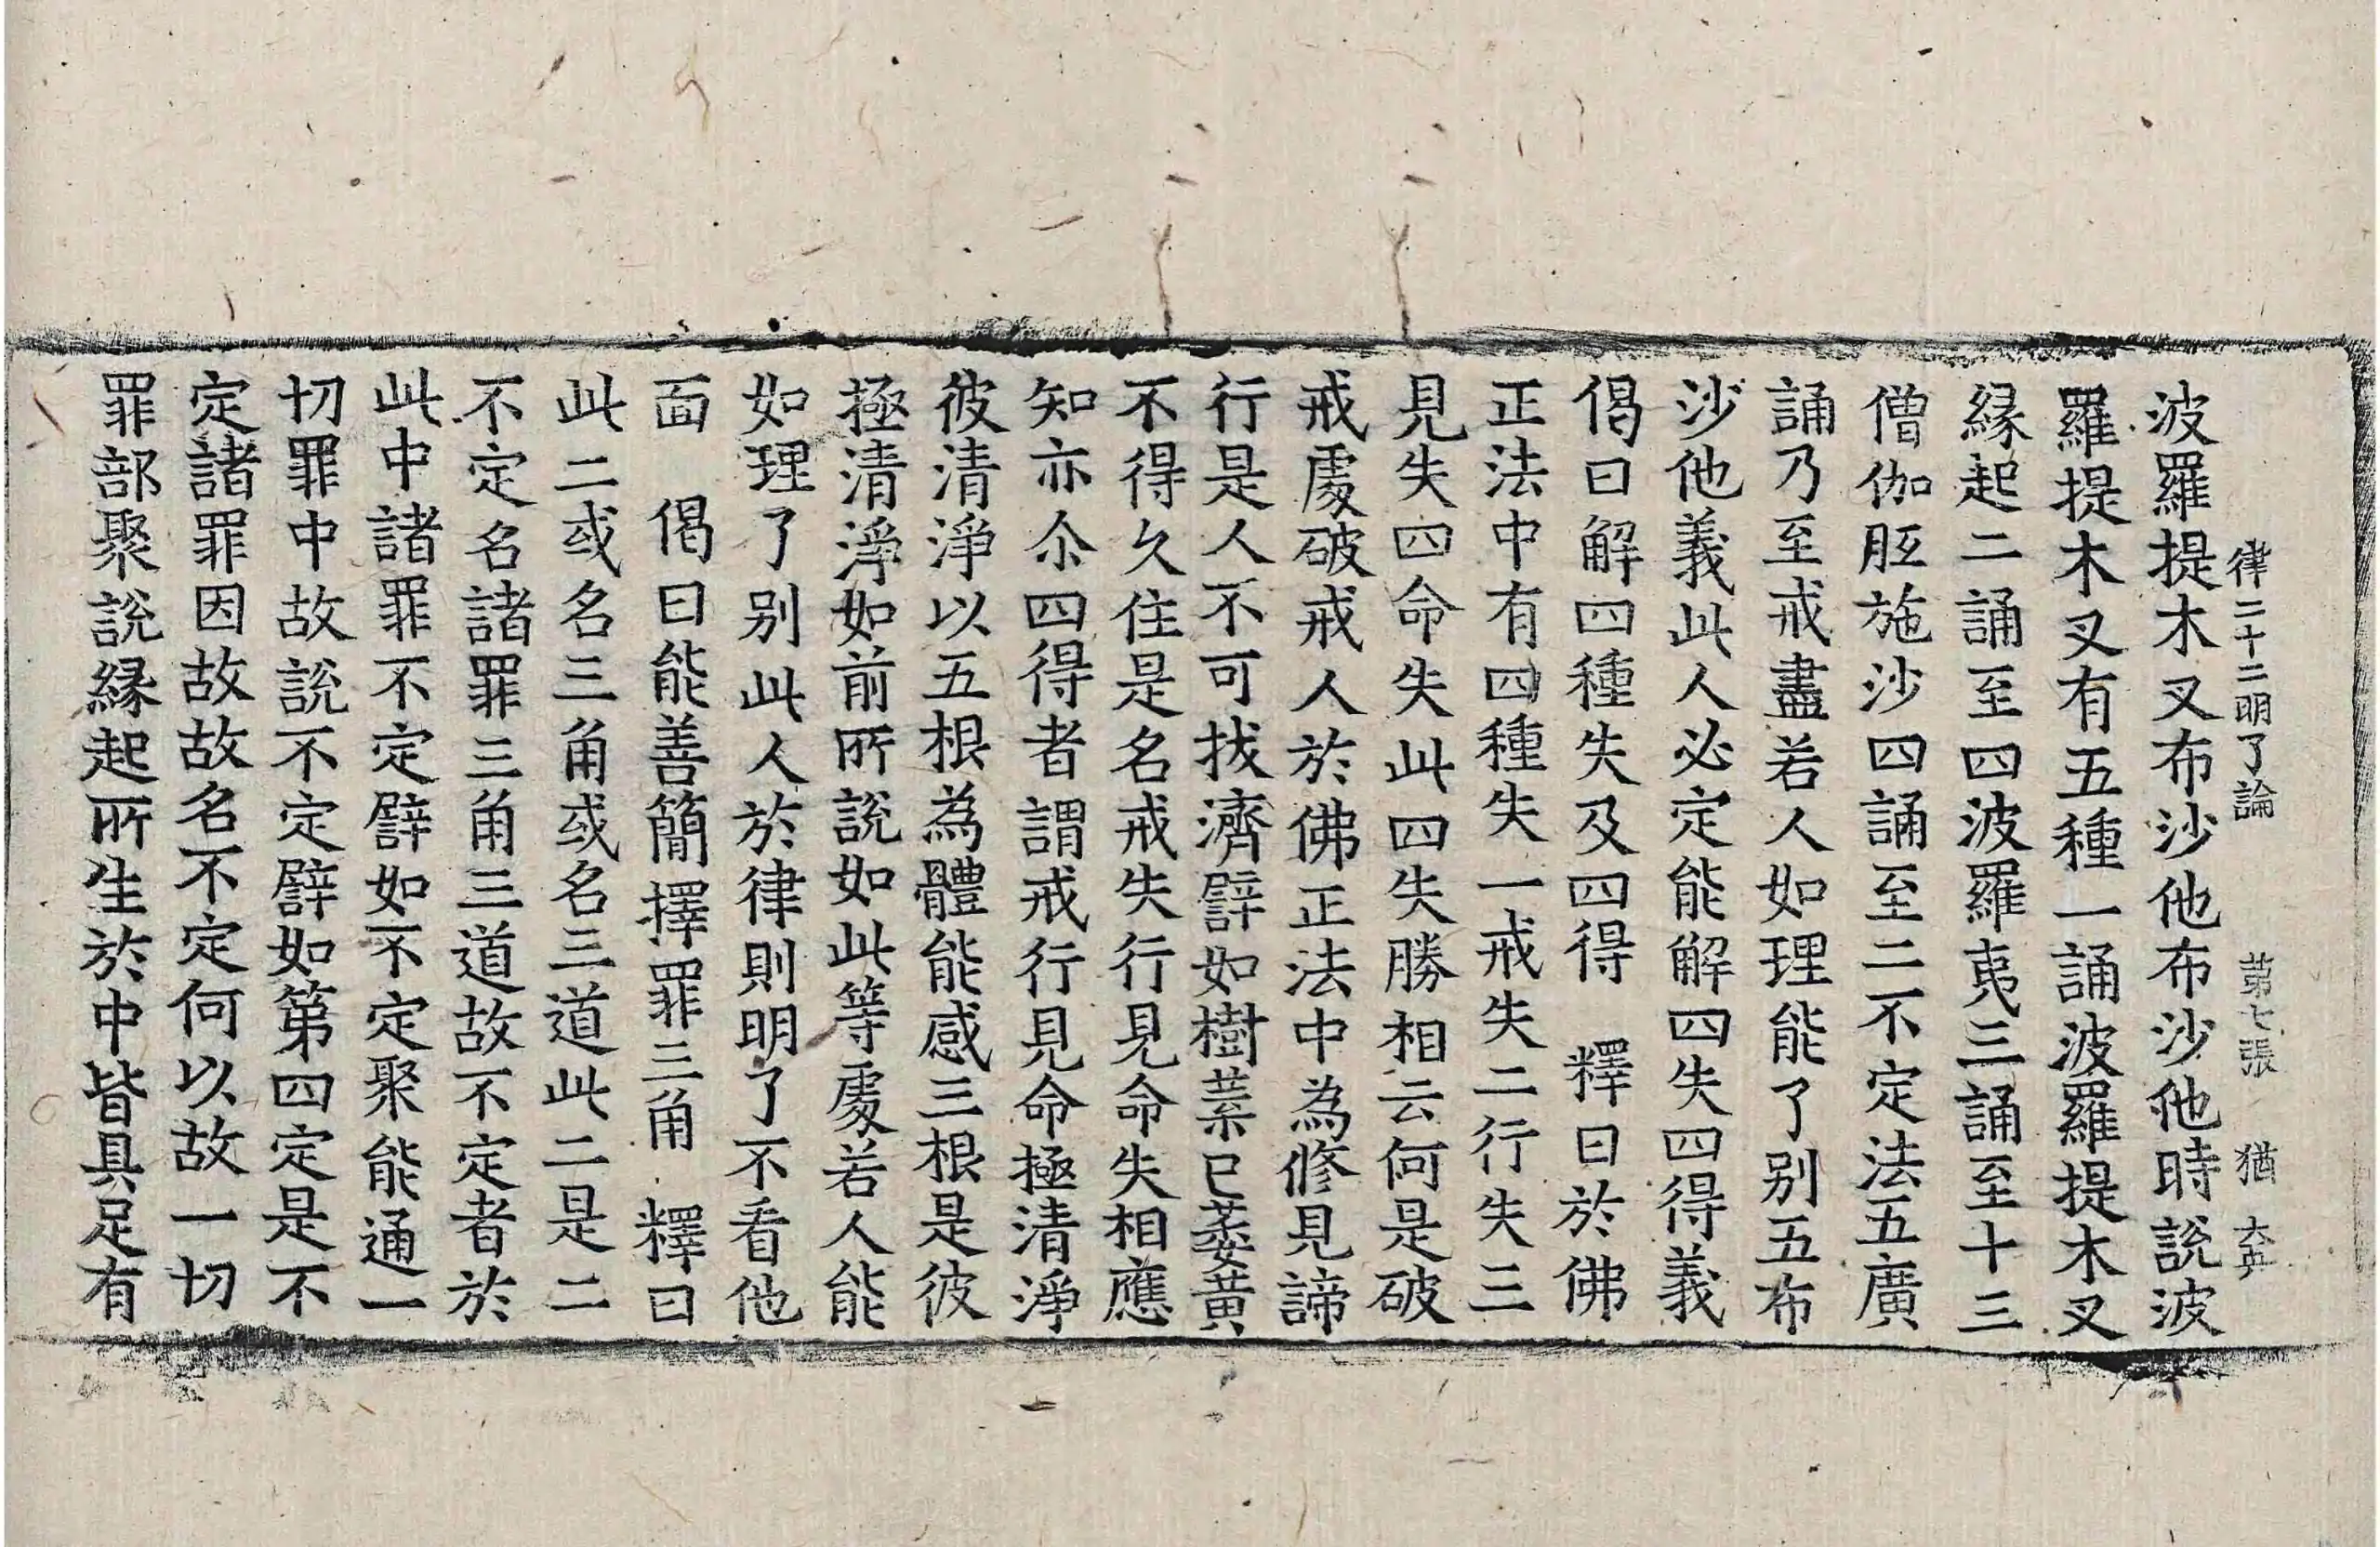 律二十二明了論 第七張 猶
波羅提木叉布沙他布沙他時說波
羅提木叉有五種一誦波羅提木叉
縁起二誦至四波羅夷三誦至十三
僧伽胝施沙四誦至二不定法五廣
誦乃至戒盡若人如理能了別五布
沙他義此人必定能解四失四得義
偈曰解四種失及四得 釋曰於佛
正法中有四種失一戒失二行失三
見失四命失此四失勝相云何是破
戒處破戒人於佛正法中為修見諦
行是人不可拔濟譬如樹葉已萎黃
不得久住是名戒失行見命失相應
知亦尒四得者謂戒行見命極清淨
彼清淨以五根為體能感三根是彼
極清淨如前所說如此等處若人能
如理了別此人於律則明了不看他
面 偈曰能善簡擇罪三角 釋曰
此二或名三角或名三道此二是二
不定名諸罪三角三道故不定者於
此中諸罪不定譬如不定聚能通一
切罪中故說不定譬如第四定是不
定諸罪因故故名不定何以故一切
罪部聚說縁起所生於中皆具足有